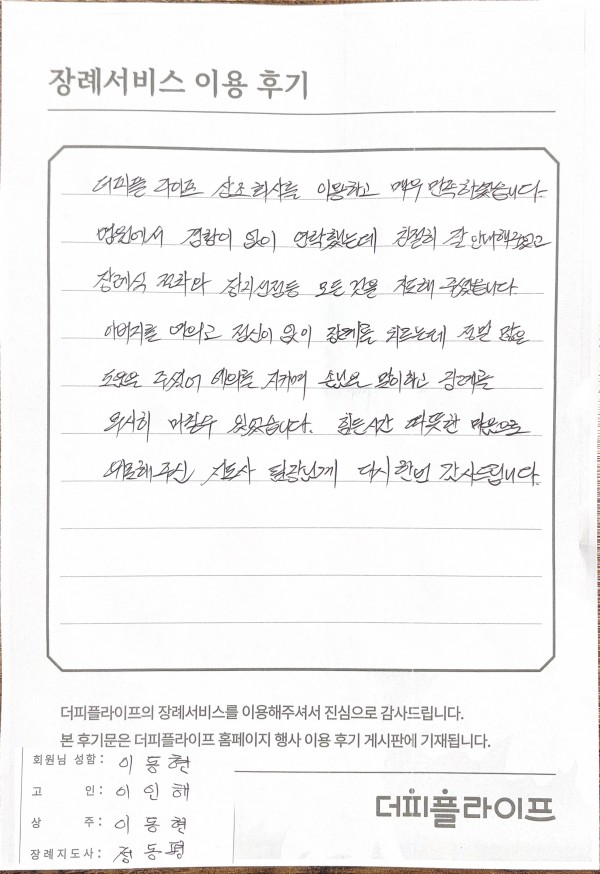 장례서비스 이용 후기
더피플 라이프 상조회사를 이용하고 매우 만족하였습니다.
병원에서 경황이 없이 연락했는데 친절히 잘 안내해주셨고
장례식 절차와 장지선정등 모든것을 지도해 주셨습니다
아버지를 여의고 정신이 없이 장례를 치르는데 정말 많은
도움을 주셨어 예의를 지키며 손님을 맞이하고 장례를
무사히 마칠수 있었습니다. 힘든시간 따뜻한 마음으로
위로해주신 지도사 팀장님께 다시한번 감사드립니다.
더피플라이프의 장례서비스를 이용해주셔서 진심으로 감사드립니다.
본 후기문은 더피플라이프 홈페이지 행사 이용 후기 게시판에 기재됩니다.
회원님 성함: 이동현
고 인: 이인해
상 주: 이동현
장례지도사: 정동평
더피플라이프